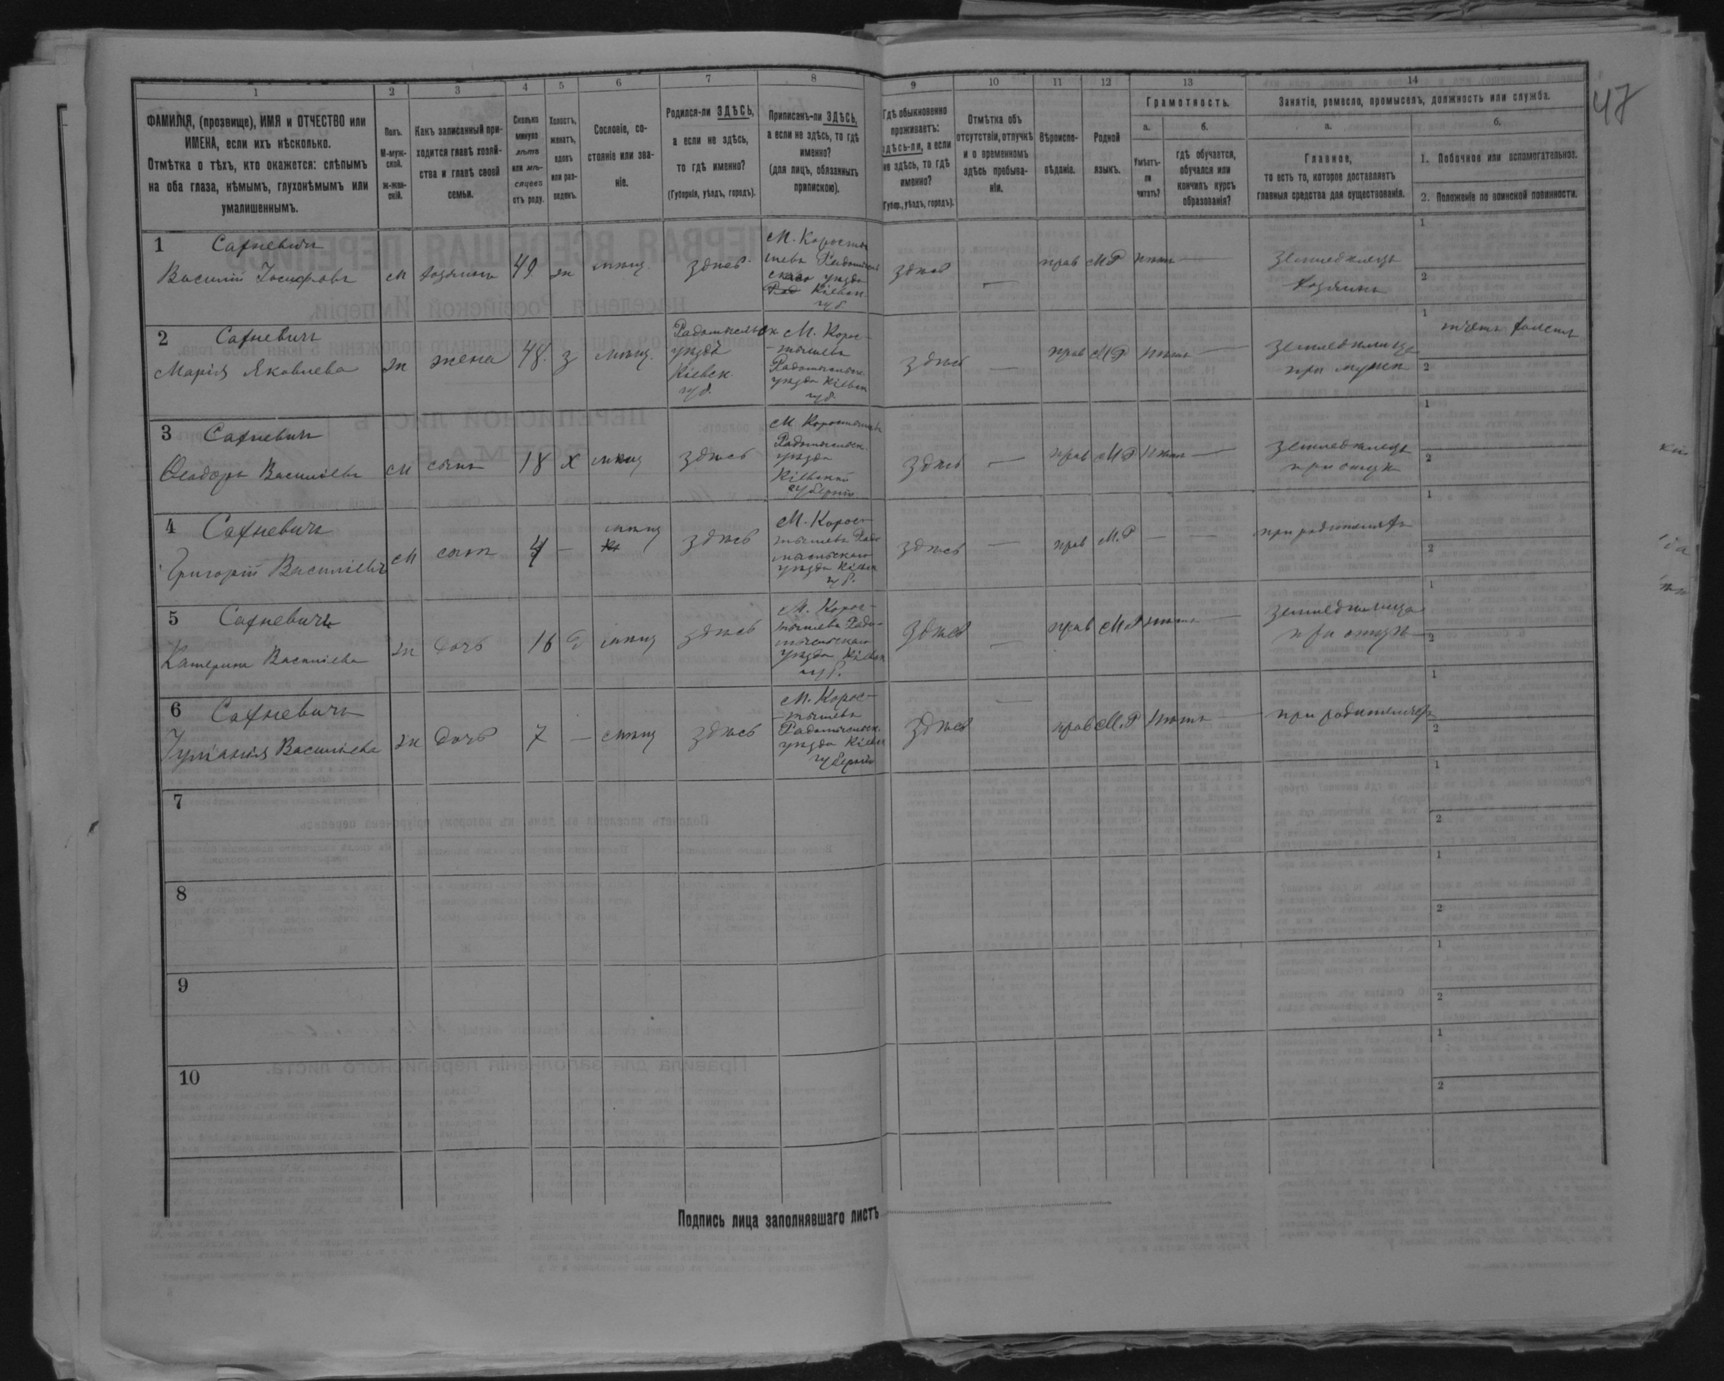 47
1 2 3 4 5 6 7 8 9 10 11 12 13 14
ФАМИЛІЯ, (прозвище), ИМЯ и ОТЧЕСТВО или
ИМЕНА, если ихъ нѣсколько.
Отмѣтка о тѣхъ, кто окажется: слѣпымъ
на оба глаза, нѣмымъ, глухонѣмымъ или
умалишеннымъ.
Полъ.
М-муж-
ской.
Ж-жен-
скій.
Какъ записанный при-
ходится главѣ хозяй-
ства и главѣ своей
семьи.
Сколько
минуло
лѣтъ
или мѣ-
сяцевъ
отъ роду.
Холостъ,
женатъ,
вдовъ
или раз-
веденъ.
Сословіе, со-
стояніе или зва-
ніе.
Родился-ли ЗДѢСЬ,
а если не здѣсь,
то гдѣ именно?
(Губернія, уѣздъ, городъ).
Приписанъ-ли ЗДѢСЬ,
а если не здѣсь, то гдѣ
именно?
(для лицъ, обязанныхъ
припискою).
Гдѣ обыкновенно
проживаетъ:
здѣсь-ли, а если
не здѣсь, то гдѣ
именно?
(Губер., уѣздъ, городъ).
Отмѣтка объ
отсутствіи, отлучкѣ
и о временномъ
здѣсь пребыва-
ніи.
Вѣроиспо-
вѣданіе.
Родной
языкъ.
Грамотность.
а.
Умѣетъ-
ли
читать?
б.
гдѣ обучается,
обучался или
кончилъ курсъ
образованія?
Занятіе, ремесло, промыселъ, должность или служба.
а.
Главное,
то есть то, которое доставляетъ
главныя средства для существованія.
б.
1. Побочное или вспомогательное.
2. Положеніе по воинской повинности.
1 Сахневичъ
Василій Іосифовъ м хозяинъ 49 ж мѣщ здѣсь
М. Коросты
шевъ Радомысль
скаго уѣзда
Кіевск
губ.
здѣсь — прав МР —
земледѣлецъ
хозяинъ
1
2
2 Сахневичъ
Марія Яковлева ж жена 48 з мѣщ
Радомысльск
уѣзда
Кіевск
губ.
М. Корос-
тышевъ
Радомысльск
уѣзда Кіевск
губ.
здѣсь — прав МР —
при мужѣ
1
2
3 Сахневичъ
Ѳеодоръ Васильевъ м сынъ 18 х мѣщ здѣсь
М Коростышевъ
Радомысльск
уѣзда
Кіевской
губерніи
здѣсь — прав МР —
земледѣлецъ
при отцѣ
1
2
4 Сахневичъ
Григорій Василіевъ м сынъ 4 — мѣщ здѣсь
М. Корос-
тышевъ Радо
мысльскаго
уѣзда Кіевск
губ.
здѣсь — прав М.Р — —
при родителяхъ
1
2
5 Сахневичъ
Катерина Василіева ж дочь 16 д мѣщ здѣсь
М. Корос-
тышевъ Радо-
мысльскаго
уѣзда Кіевск
губ.
здѣсь — прав М.Р —
при отцѣ
1
2
6 Сахневичъ
Іуліанія Василіева ж дочь 7 — мѣщ здѣсь
М. Корос-
тышевъ
Радомысльск.
уѣзда Кіевск
губерніи
здѣсь — прав М.Р —
при родителяхъ
1
2
7
1
2
8
1
2
9
1
2
10
1
2
Подпись лица заполнявшаго листъ